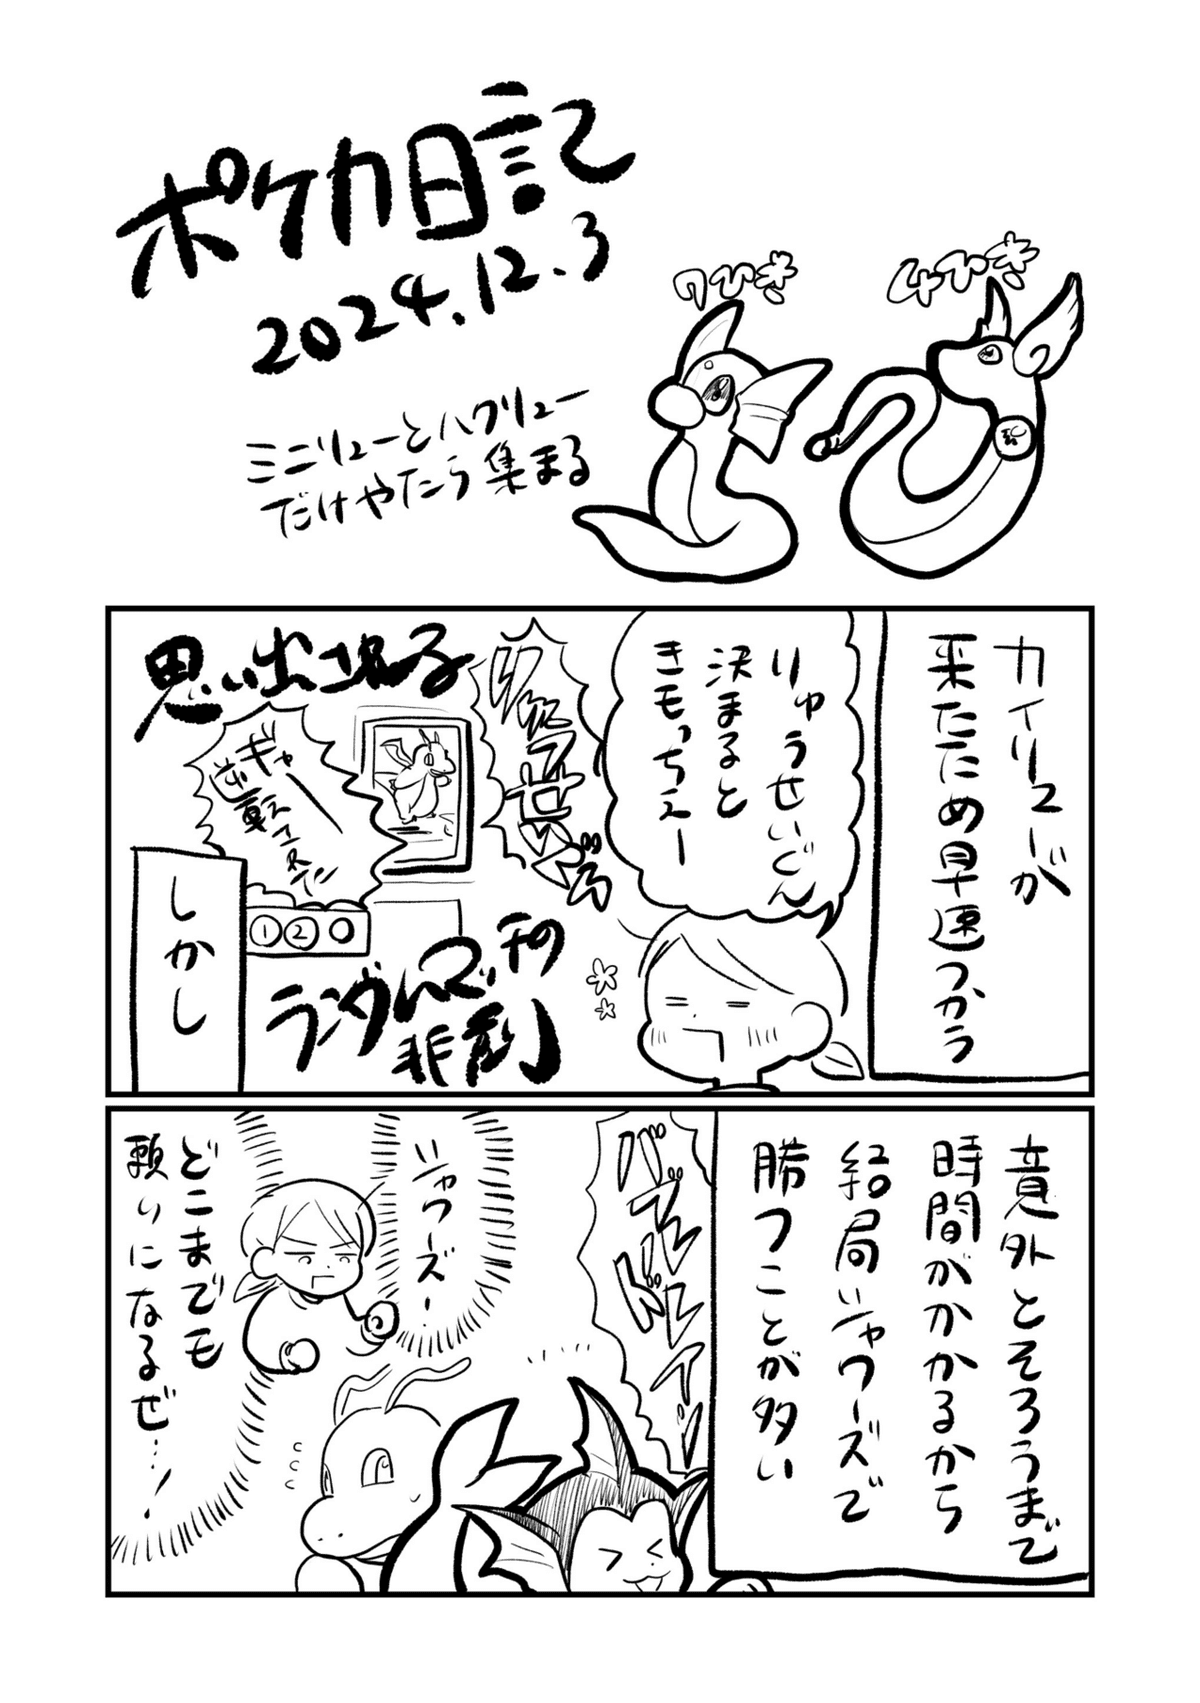 ポケカ日記
2024.12.3
7ひき
4ひき
ミニリューとハクリュー
だけやたら集まる
カイリューが
来たため早速つかう
りゅうせいぐん
決まると
きもっちぇー
思い出エネる
ギャー
逆転エスティン
①②
ランダムマッチの
非劇
しかし
意外とそろうまで
時間がかかるから
結局シャワーズで
勝つことが多い
シャワーズ…
どこまでも
頼りになるぜ…!